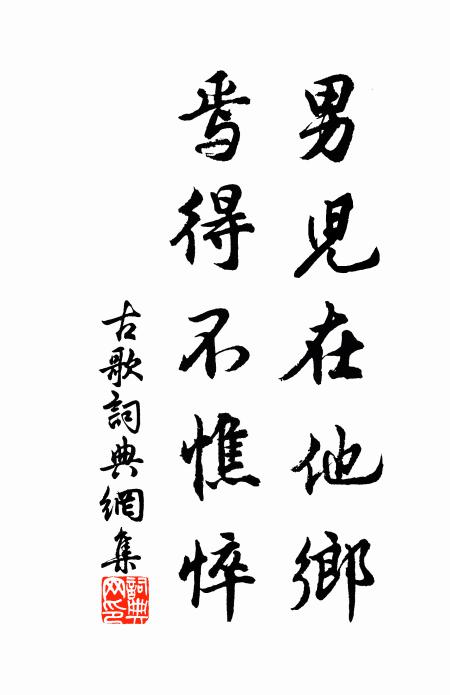 男兒在他鄉
焉得不憔悴
古歌詞典網集
詞典網印